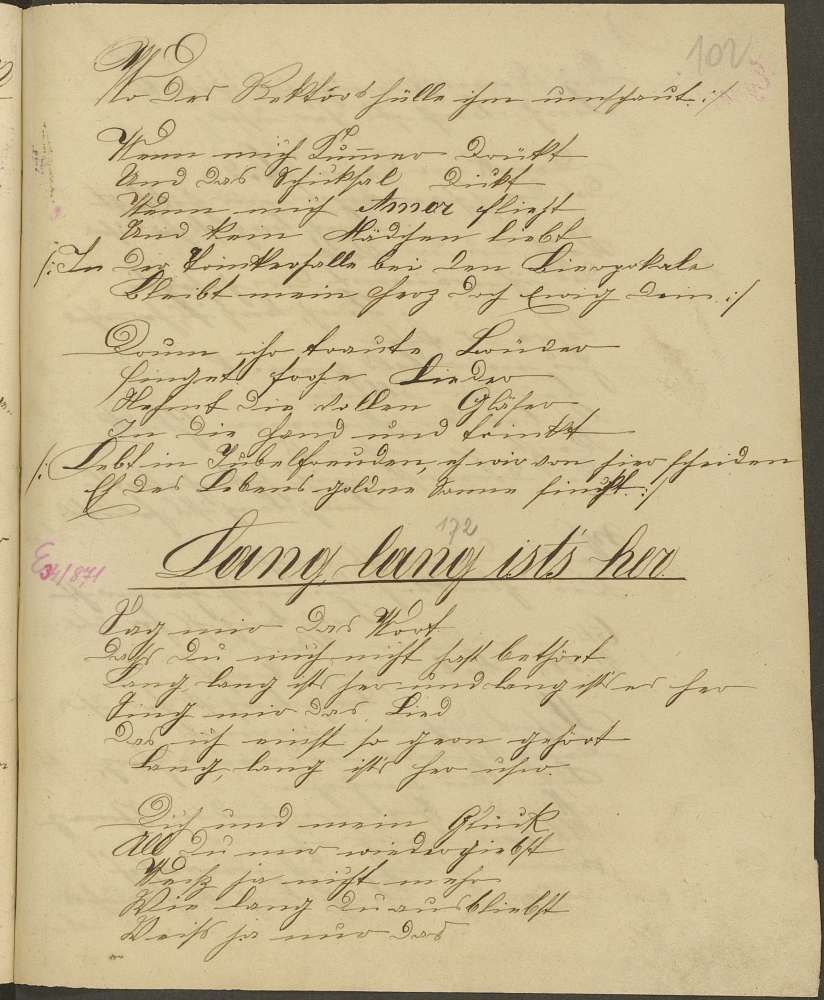 102
Wo des Rektors hülle ihm umschaut :/
Wenn mich Kummer Drükt
Und das Schiksal Dükt
Wenn mich Amor flieht
Und kein Mädchen liebt
/: In Der Trinkerhalle bei den Bierpokale
Bleibt mein Herz doch Ewig Dein :/
Drum ihr traute Brüder
Singet frohe Lieder
Nehmt Die vollen Gläser
In Die Hand und trinkt
/: Lebt in Jubelfreuden, eh wir von hier scheiden
Eh Des Lebens goldne Sonne sinkt :/
172
Lang, lang ist's her.
E34/871
Sag mir Das Wort
Dass Du mich nicht hast bethört
Lang lang ists her und lang ists er her
Sing mir das Lied
Das ich einst so gern gehört
Lang, lang ists her usw.
Dich und mein Glück
All Du mir wiedergiebst
Weiß ja nicht mehr
Wie lang Du ausbliebst
Weiss ja nur Das